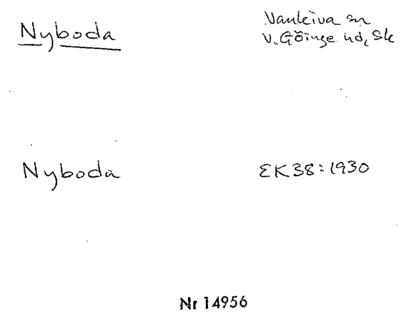 Nyboda
Vankiva sn
V. Göinge hd, Sk
Nyboda
EK38:1930
Nr 14956